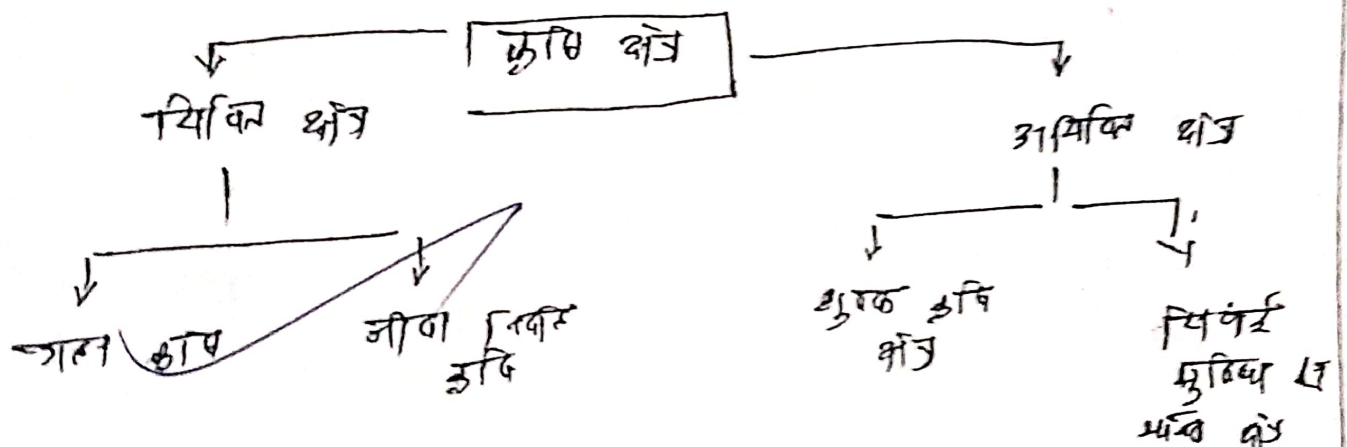 कृषि क्षेत्र
सिंचित क्षेत्र
असिंचित क्षेत्र
गहन कृषि
जीवन निर्वाह
कृषि
शुष्क कृषि
क्षेत्र
सिंचाई
सुविधा से
क्षेत्र